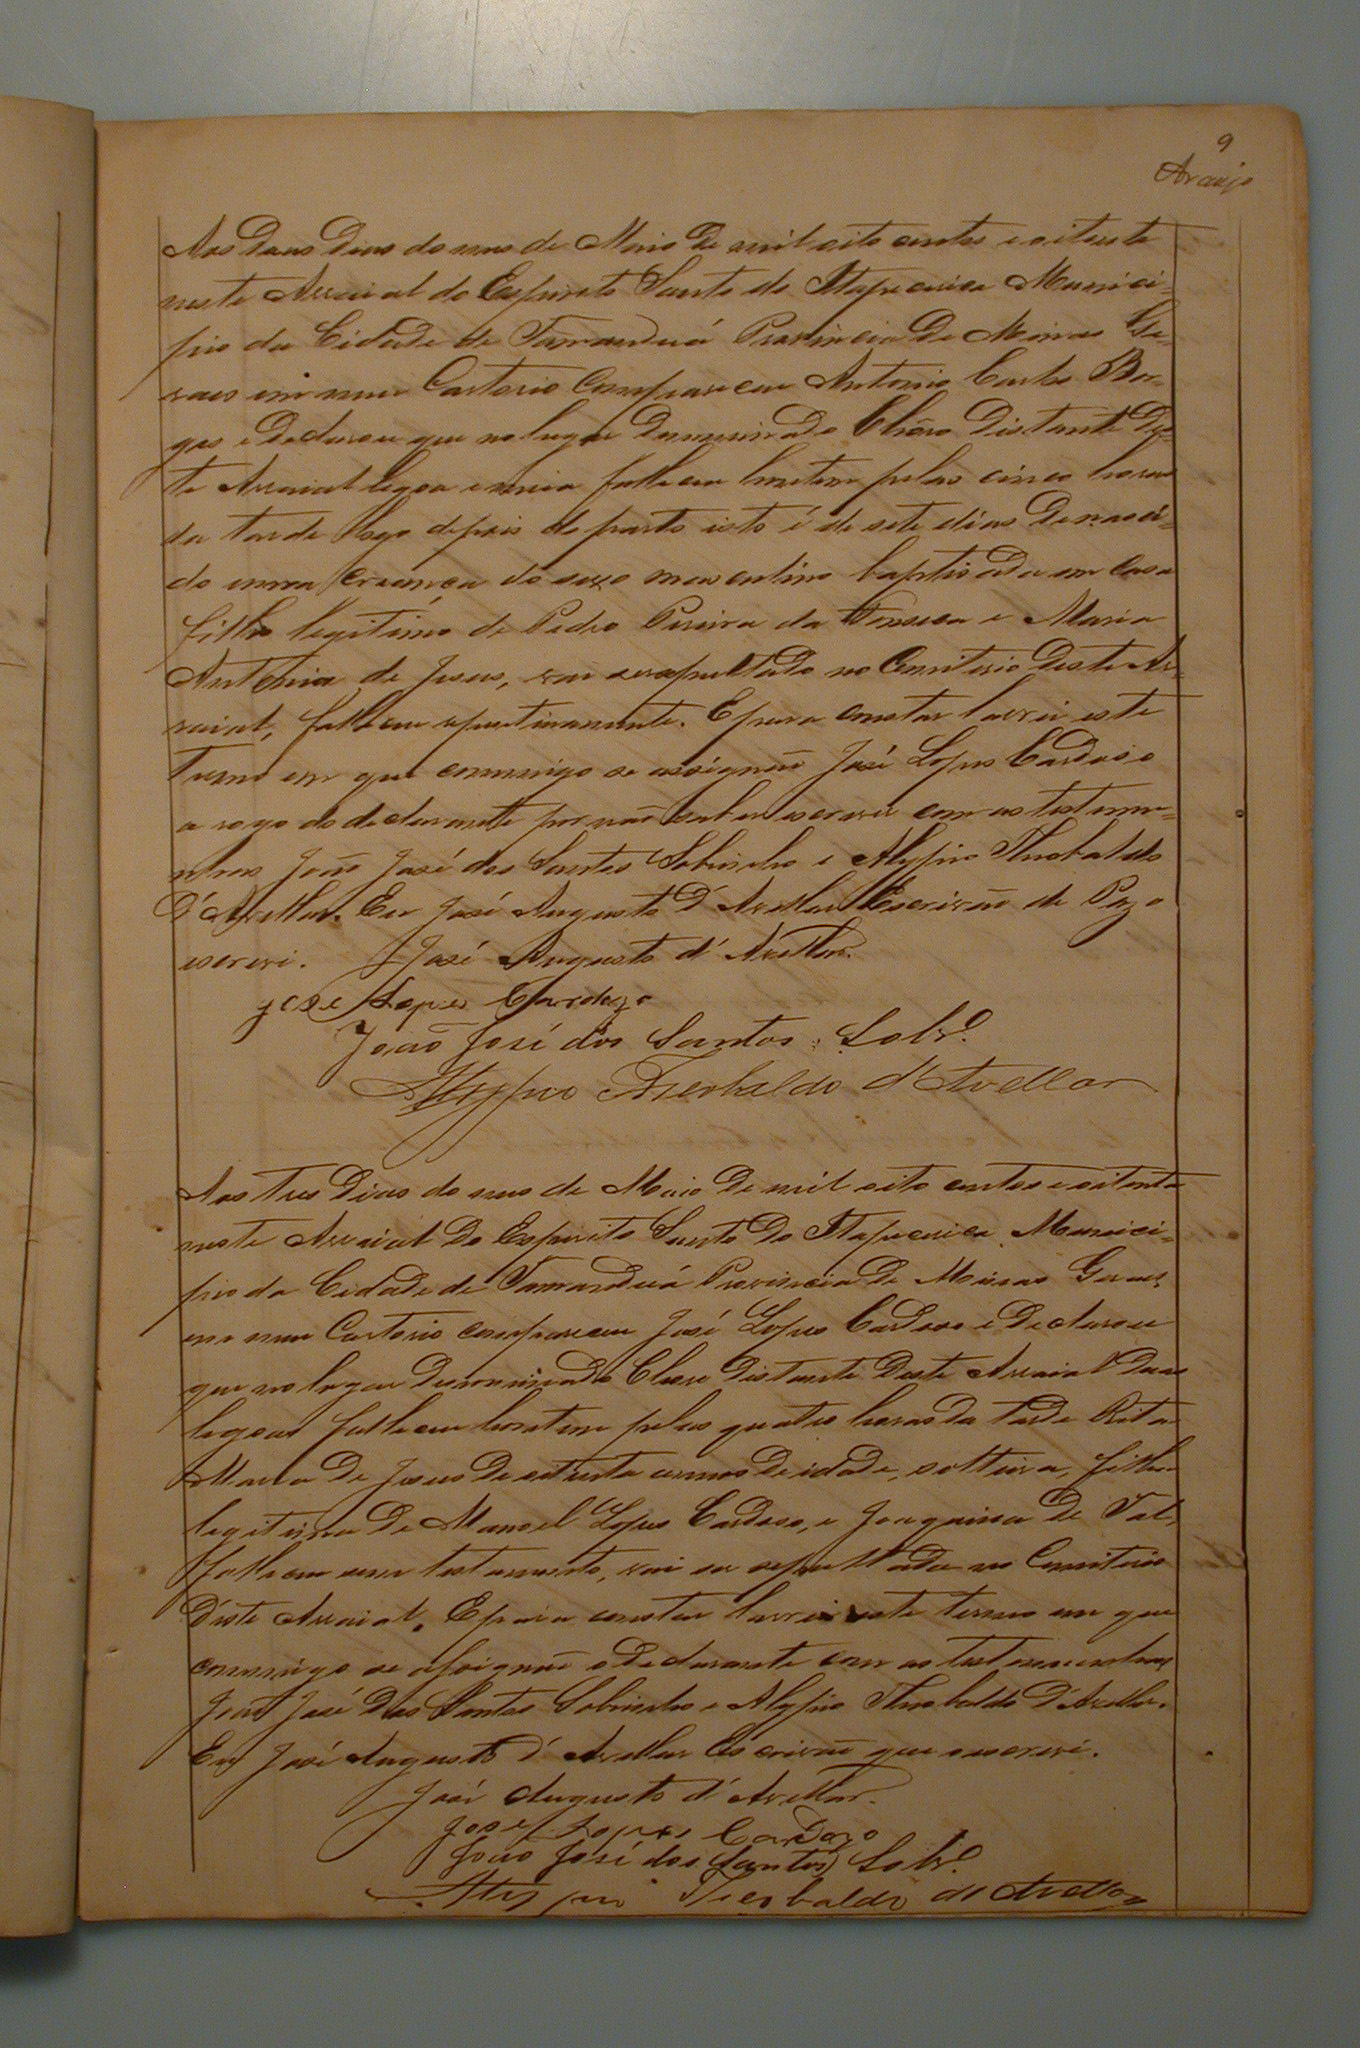 9
Araujo
Aos dous dias do mes de Maio de mil oito centos e oitenta
neste Arraial do Espirito Santo do Itapecerica Munici-
pio da Cidade de Tamanduá Provincia de Minas Ge-
raes em meu Cartorio compareceu Antonio Carlos Bor-
ges e declarou que no lugar denominado Choro distante des-
te Arraial legoa e meia falleceu hontem pelas cinco horas
da tarde logo depois do parto isto é de sete dias de nasci-
do uma criança do sexo masculino baptisada em casa
filho legitimo de Pedro Pereira da Fonseca e Maria
Antonia de Jesus, vai ser sepultado no Cemiterio deste Ar-
raial, falleceu repentinamente. E para constar lavrei este
termo em que commigo se assignão José Lopes Cardoso
a rogo do declarante por não saber escrever com as testemu-
nhas João José dos Santos Sobrinho e Alypio Theobaldo
d'Avellar. Eu José Augusto d'Avellar Escrivão de Paz o
escrevi. José Augusto d'Avellar.
jose Lopes Cardozo
João José dos Santos Sobr.o
Alypio Teobaldo d'Avellar
Aos tres dias do mes de Maio de mil oito centos e oitenta
neste Arraial do Espirito Santo do Itapecerica Munici-
pio da Cidade de Tamanduá Provincia de Minas Geraes
em meu Cartorio compareceu José Lopes Cardoso e declarou
que no lugar denominado Choro distante deste Arraial duas
legoas falleceu hontem pelas quatro horas da tarde Rita
Maria de Jesus de setenta annos de idade, solteira, filha
legitima de Manoel Lopes Cardoso, e Joaquina de Tal,
falleceu sem testamento, vai ser sepultada no Cemiterio
deste Arraial. E para constar lavrei este termo em que
commigo se assignão o declarante com as testemunhas
João José dos Santos Sobrinho e Alypio Theobaldo d'Avellar.
Eu José Augusto d'Avellar Escrivão que o escrevi.
José Augusto d'Avellar.
Jose Lopes Cardozo
João José dos Santos Sobr.o
Alypio Teobaldo d'Avellar